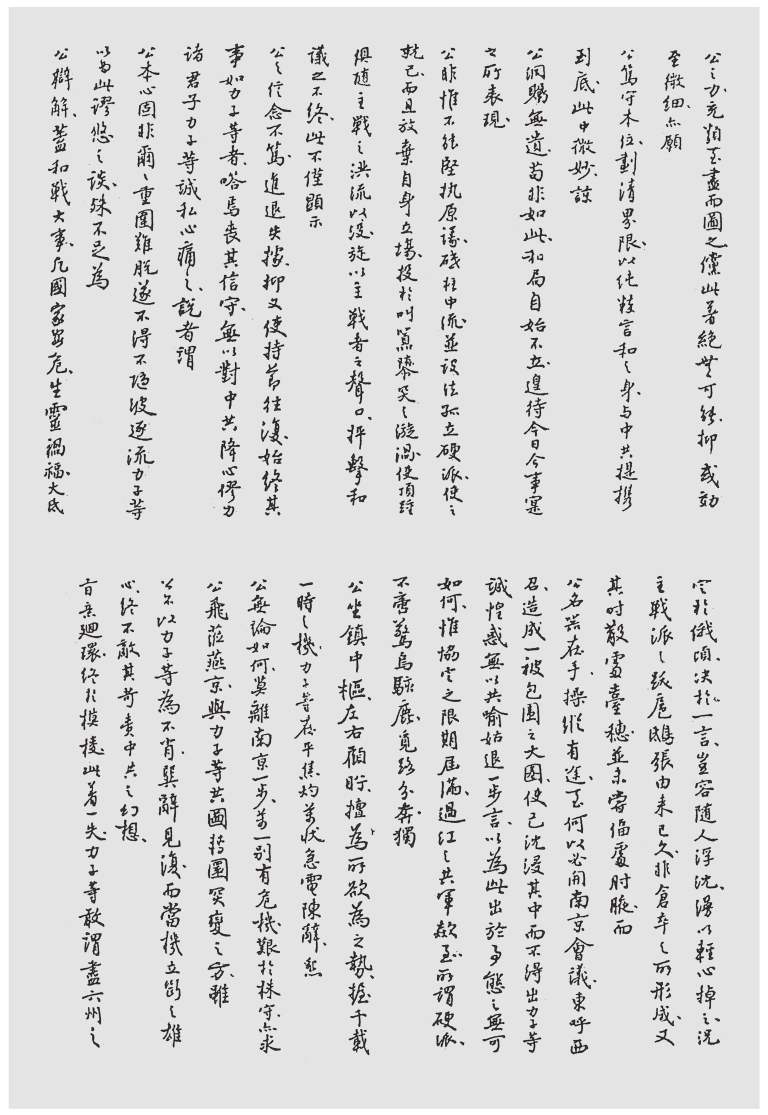 公之力充類至盡而圖之儻此著絕無可能抑或効
至微細亦願
公篤守本位劃清界限以純粹言和之身与中共提攜
到底此中微妙諒
公洞矚無遺苟非如此和局自始不立遑待今日今事寔
之所表現
公非惟不能堅執原議砥柱中流並設法孤立硬派使之
就己而且放棄自身立場投於叫囂隳突之漩渦使頂踵
俱隨主戰之洪流以没旋以主戰者之聲口抨擊和
議之不終此不僅顯示
公之信念不篤進退失據抑又使持節往復始終其
事如力子等者嗒焉喪其信守無以對中共降心僇力
諸君子力子等誠私心痛之説者謂
公本心固非爾爾重圍難脱遂不得不随波逐流力子等
以為此謬悠之談殊不足為
公辯解蓋和戰大事凡國家安危生靈禍福大氐
定於俄頃决於一言豈容隨人浮沈漫以輕心掉之况
主戰派之跋扈鴟張由来已久非倉卒之所形成又
其時散處臺穗並未嘗偪處肘腋而
公名器在手操縱有途至何以必開南京會議東呼西
召造成一被包圍之大圈使己沈浸其中而不得出力子等
誠惶惑無以共喻姑退一步言以為此出於事態之無可
如何惟協定之限期屆滿過江之共軍欻至所謂硬派
不啻驚鳥駭鹿覓路分奔獨
公坐鎮中樞左右顧盼擅為所欲為之勢握千載
一時之機力子等在平焦灼萬状急電陳辭懇
公無論如何莫離南京一步萬一別有危機艱於株守亦求
公飛蒞燕京與力子等共圖轉圜突變之方雖
公不以力子等為不肖巽辭見復而當機立斷之雄
心終不敵其苛責中共之幻想
廻環終於模棱此着一失力子等敢謂盡六州之